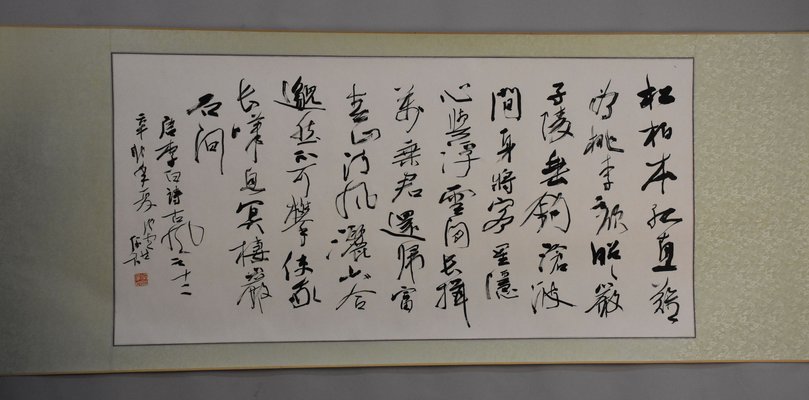 松柏本孤直難
為桃李顏昭昭嚴
子陵垂釣滄波
間身將客星隱
心與浮雲閑長揖
萬乘君還歸富
春山清風灑六合
邈然不可攀使我
長嘆息冥棲巖
石間
唐李白詩古風之十二
辛